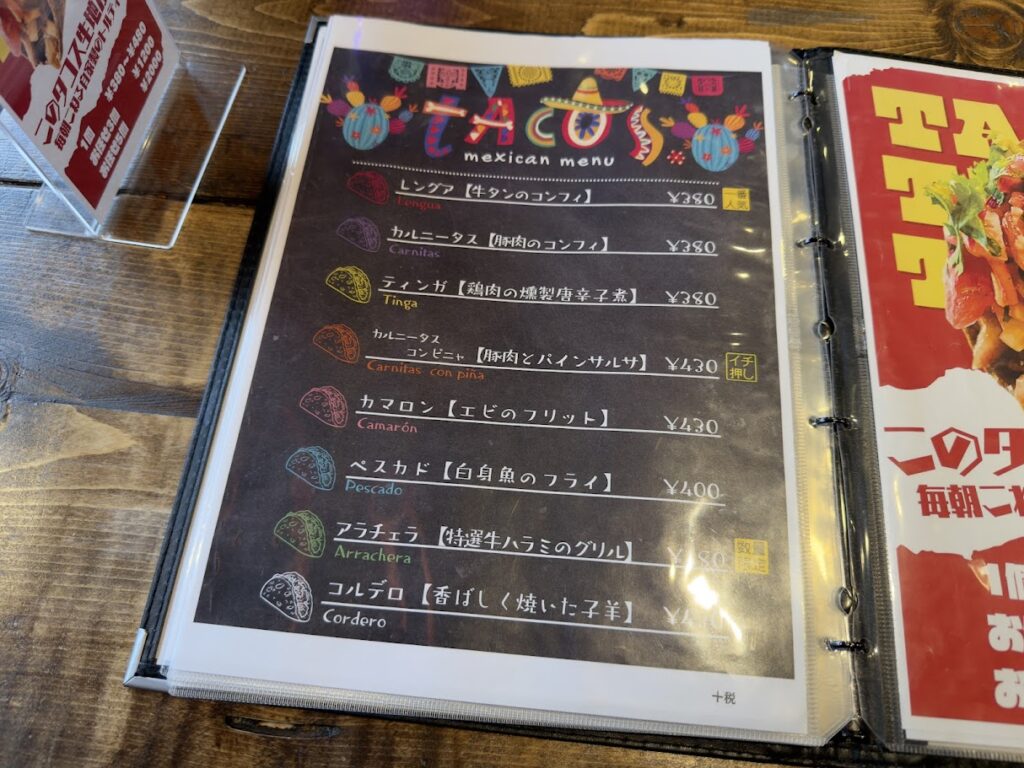 TACOS
mexican menu
レングア【牛タンのコンフィ】 ¥380 一番人気
Lengua
カルニータス【豚肉のコンフィ】 ¥380
Carnitas
ティンガ【鶏肉の燻製唐辛子煮】 ¥380
Tinga
カルニータス
コンピニャ【豚肉とパインサルサ】 ¥430 イチ押し
Carnitas con piña
カマロン【エビのフリット】 ¥430
Camarón
ペスカド【白身魚のフライ】 ¥400
Pescado
アラチェラ【特選牛ハラミのグリル】
Arrachera
コルデロ【香ばしく焼いた子羊】
Cordero
+税
このタコス生地
1個 ¥380~¥480
¥1200
¥2000
TA
このタ
毎朝こ
1個
お
お